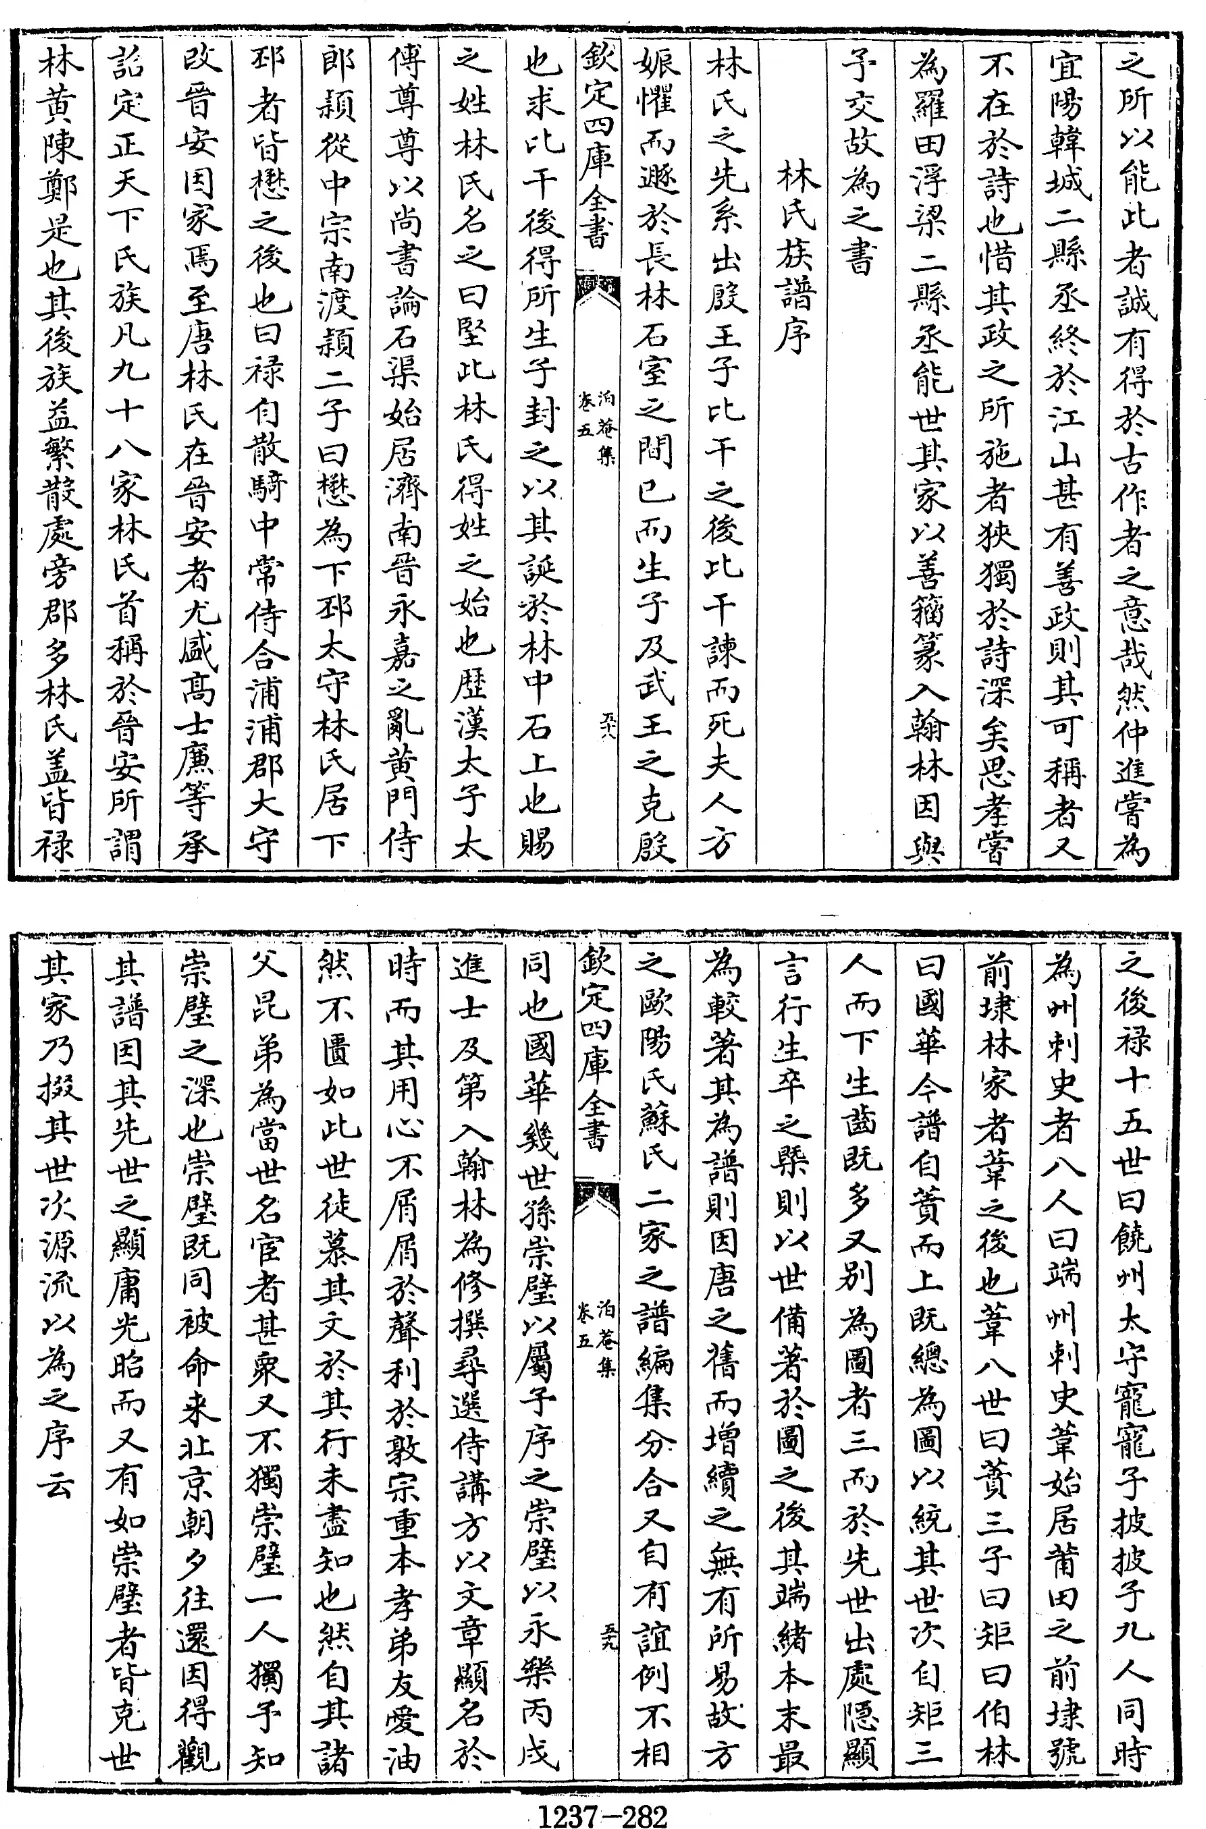 之所以能此者誠有得於古作者之意哉然仲進嘗為
宜陽韓城二縣丞終於江山甚有善政則其可稱者又
不在於詩也惜其政之所施者狹獨於詩深矣思孝嘗
為羅田浮梁二縣丞能世其家以善籀篆入翰林因與
予交故為之書
林氏族譜序
林氏之先系出殷王子比干之後比干諫而死夫人方
娠懼而遯於長林石室之間已而生子及武王之克殷
欽定四庫全書
泊菴集
卷五
五十八
也求比干後得所生子封之以其誕於林中石上也賜
之姓林氏名之曰堅此林氏得姓之始也歷漢太子太
傅尊尊以尚書論石渠始居濟南晉永嘉之亂黃門侍
郎頴從中宗南渡頴二子曰懋為下邳太守林氏居下
邳者皆懋之後也曰祿自散騎中常侍合浦浦郡大守
改晉安因家焉至唐林氏在晉安者尤盛高士廉等承
詔定正天下氏族凡九十八家林氏首稱於晉安所謂
林黃陳鄭是也其後族益繁散處旁郡多林氏盖皆祿
之後祿十五世曰饒州太守寵寵子披披子九人同時
為州刺史者八人曰端州刺史葦始居莆田之前埭號
前埭林家者葦之後也葦八世曰蕡三子曰矩曰伯林
曰國華今譜自蕡而上既總為圖以統其世次自矩三
人而下生齒既多又別為圖者三而於先世出處隱顯
言行生卒之槩則以世備著於圖之後其端緒本末最
為較著其為譜則因唐之舊而增續之無有所易故方
之歐陽氏蘇氏二家之譜編集分合又自有誼例不相
欽定四庫全書
泊菴集
卷五
五十九
同也國華幾世孫崇璧以屬予序之崇璧以永樂丙戌
進士及第入翰林為修撰尋選侍講方以文章顯名於
時而其用心不屑屑於聲利於敦宗重本孝弟友愛油
然不匱如此世徒慕其文於其行未盡知也然自其諸
父昆弟為當世名宦者甚衆又不獨崇璧一人獨予知
崇璧之深也崇璧既同被命来北京朝夕往還因得觀
其譜因其先世之顯庸光昭而又有如崇璧者皆克世
其家乃掇其世次源流以為之序云
1237-282